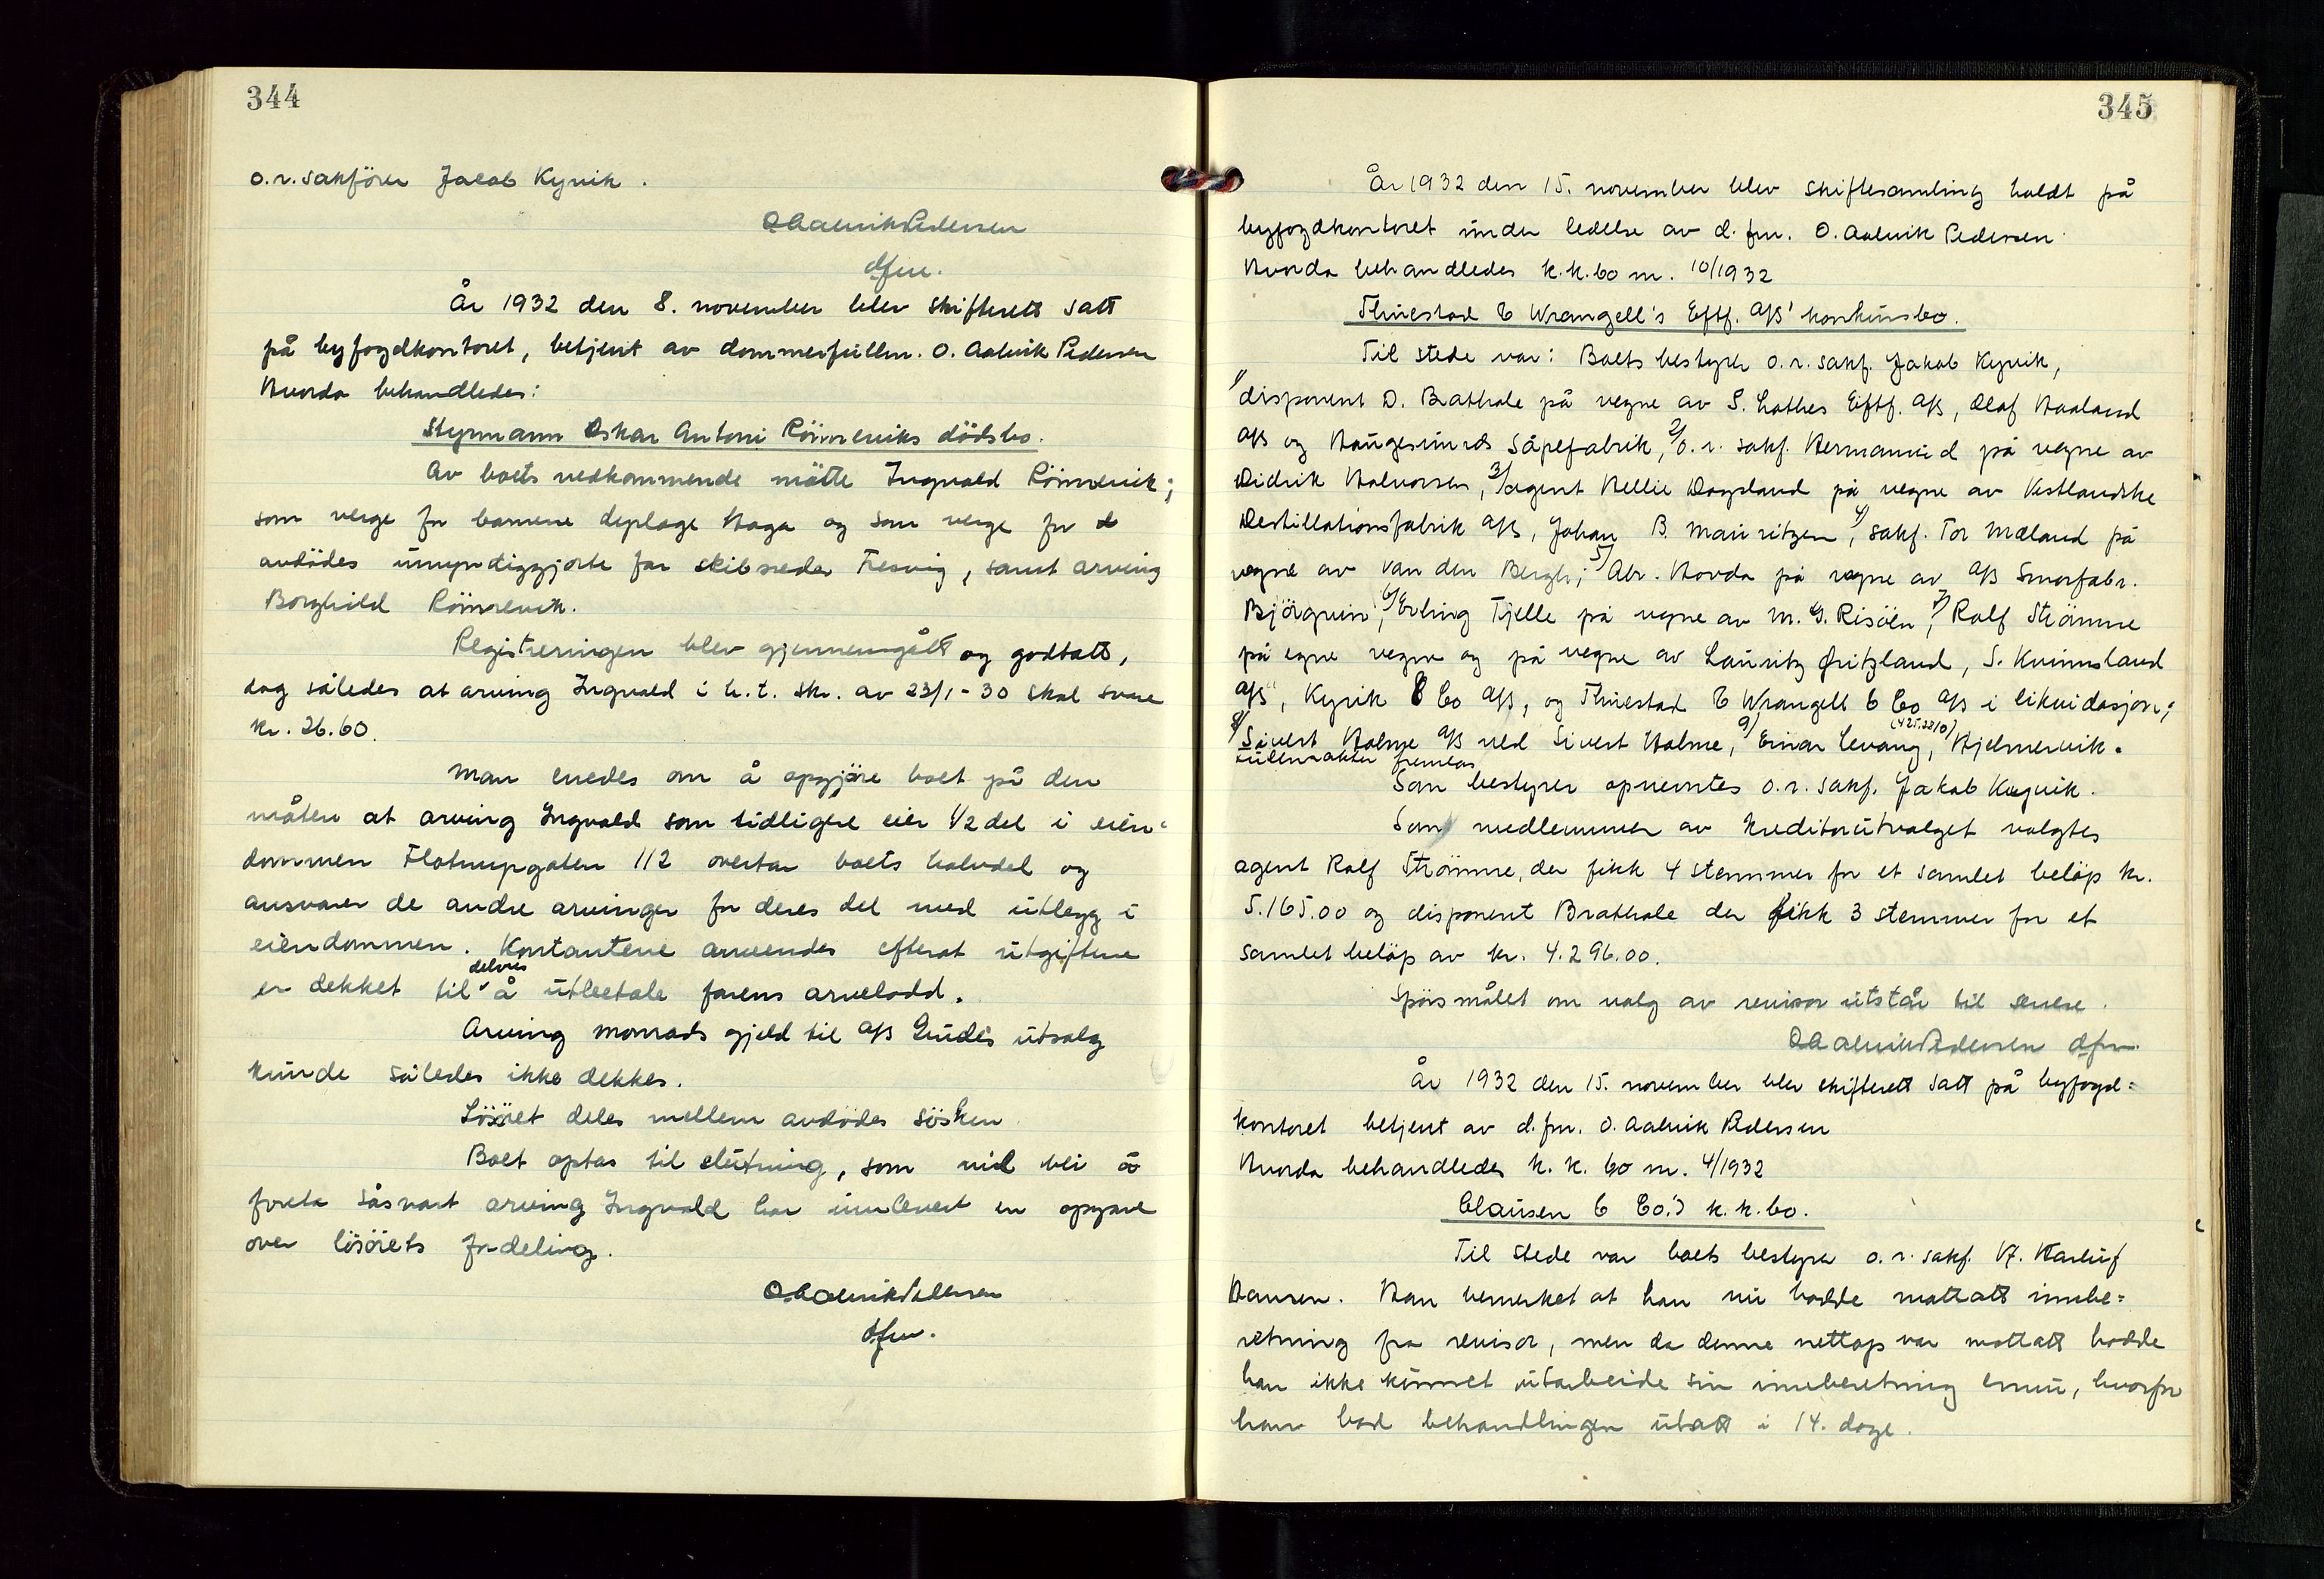 344
o.r.sakförer Jacob Kyvik.
O Aalvik Pedersen
dfm.
År 1932 den 8. november blev skifterett satt
på byfogdkontoret, betjent av dommerfullm. O. Aalvik Pedersen
Hvorda behandledes:
Styrmann Oskar Antoni Römreviks dödsbo.
Av boets vedkommende mötte Ingvald Römrevik;
som verge for barnene Haga og som verge for
avdödes umyndiggjorte far skibsreder Tresvig, samt arving
Borghild Römrevik.
Registreringen blev gjennemgått og godtatt,
dog således at arving Ingvald i h.t. skr. av 23/1-30 skal svare
kr. 26.60.
Man enedes om å opgjöre boet på den
måten at arving Ingvald som tidligere eier 1/2 del i eien-
dommen Flotmyrgaten 112 overtar boets halvdel og
ansvarer de andre arvinger for deres del med utlegg i
eiendommen. Kontantene anvendes efterat utgiftene
er dekket til delvis å utbetale farens arvelodd.
Arving Monrads gjeld til A/S Gudes utsalg
kunde således ikke dekkes.
Lösöret deles mellem avdödes sösken
Boet optas til slutning, som vil bli å
foreta såsnart arving Ingvald har innlevert en opgave
over lösörets fordeling.
O Aalvik Pedersen
dfm.
345
År 1932 den 15. november blev skiftesamling holdt på
byfogdkontoret under ledelse av d.fm. O. Aalvik Pedersen
Hvorda behandledes k.k.bo nr. 10/1932
Thuestad & Wrangell's Eftf. A/S' konkursbo.
Til stede var: Boets bestyrer o.r. sakf. Jakob Kyvik,
1/ disponent D. Brathole på vegne av S. Lothes Eftf. A/S, Olaf Haaland
A/S og Haugesunds Såpefabrik, 2/ o.r. sakf. Hermanrud på vegne av
Didrik Halvorsen, 3/ agent Nellie Dagsland på vegne av Vestlandske
Destillationsfabrik A/S, Johan B. Mauritzen, 4/ sakf. Tor Mæland på
vegne av van den Bergh; 5/ Abr. Hovda på vegne av A/S Smorfabr.
Björgvin, 6/ Erling Tjelle på vegne av M. G. Risöen, 7/ Rolf Strömme
på egne vegne og på vegne av Lauritz Fritzland, S. Kvinnsland
A/S, Kyvik & Co A/S, og Thuestad & Wrangell & Co A/S i likvidasjon;
8/ Sivert Holme A/S ved Sivert Holme, 9/ Einar Levang, (425.28/0) Hjelmervik.
fullmakter fremlas
Som bestyrer opnevntes o.r. sakf. Jakob Kyvik.
Som medlemmer av kreditorutvalget valgtes
agent Rolf Strömme, der fikk 4 stemmer for et samlet belöp kr.
5.165.00 og disponent Brathole der fikk 3 stemmer for et
samlet belöp av kr. 4.296.00.
Spörsmålet om valg av revisor utstår til senere.
O Aalvik Pedersen dfm.
År 1932 den 15. november blev skifterett satt på byfogd=
kontoret betjent av d.fm. O. Aalvik Pedersen
Hvorda behandledes k.k. bo nr. 4/1932
Clausen & Co.'s k.k.bo.
Til stede var boets bestyrer o.r. sakf. Harluf
Hansen. Han bemerket at han nu hadde mottatt innbe=
retning fra revisor, men da denne nettop var mottatt hadde
han ikke kunnet utarbeide sin innberetning ennu, hvorfor
han bad behandlingen utsatt i 14. dage.